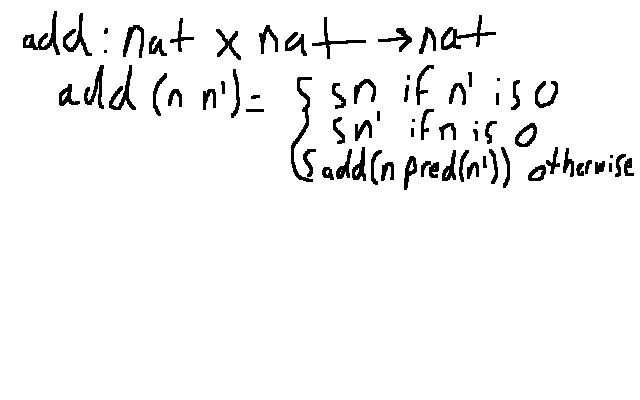 add : nat x nat → nat
add (n n') = { sn if n' is 0
sn' if n is 0
s add(n pred(n')) otherwise